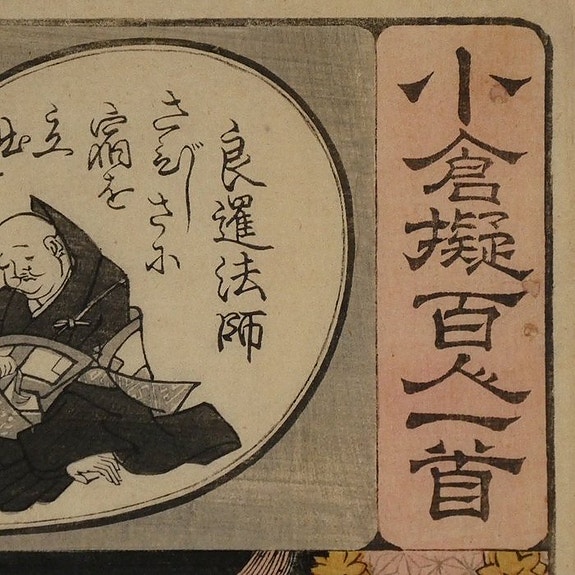 小倉擬百人一首
良暹法師
さびしさに
宿を
立
出